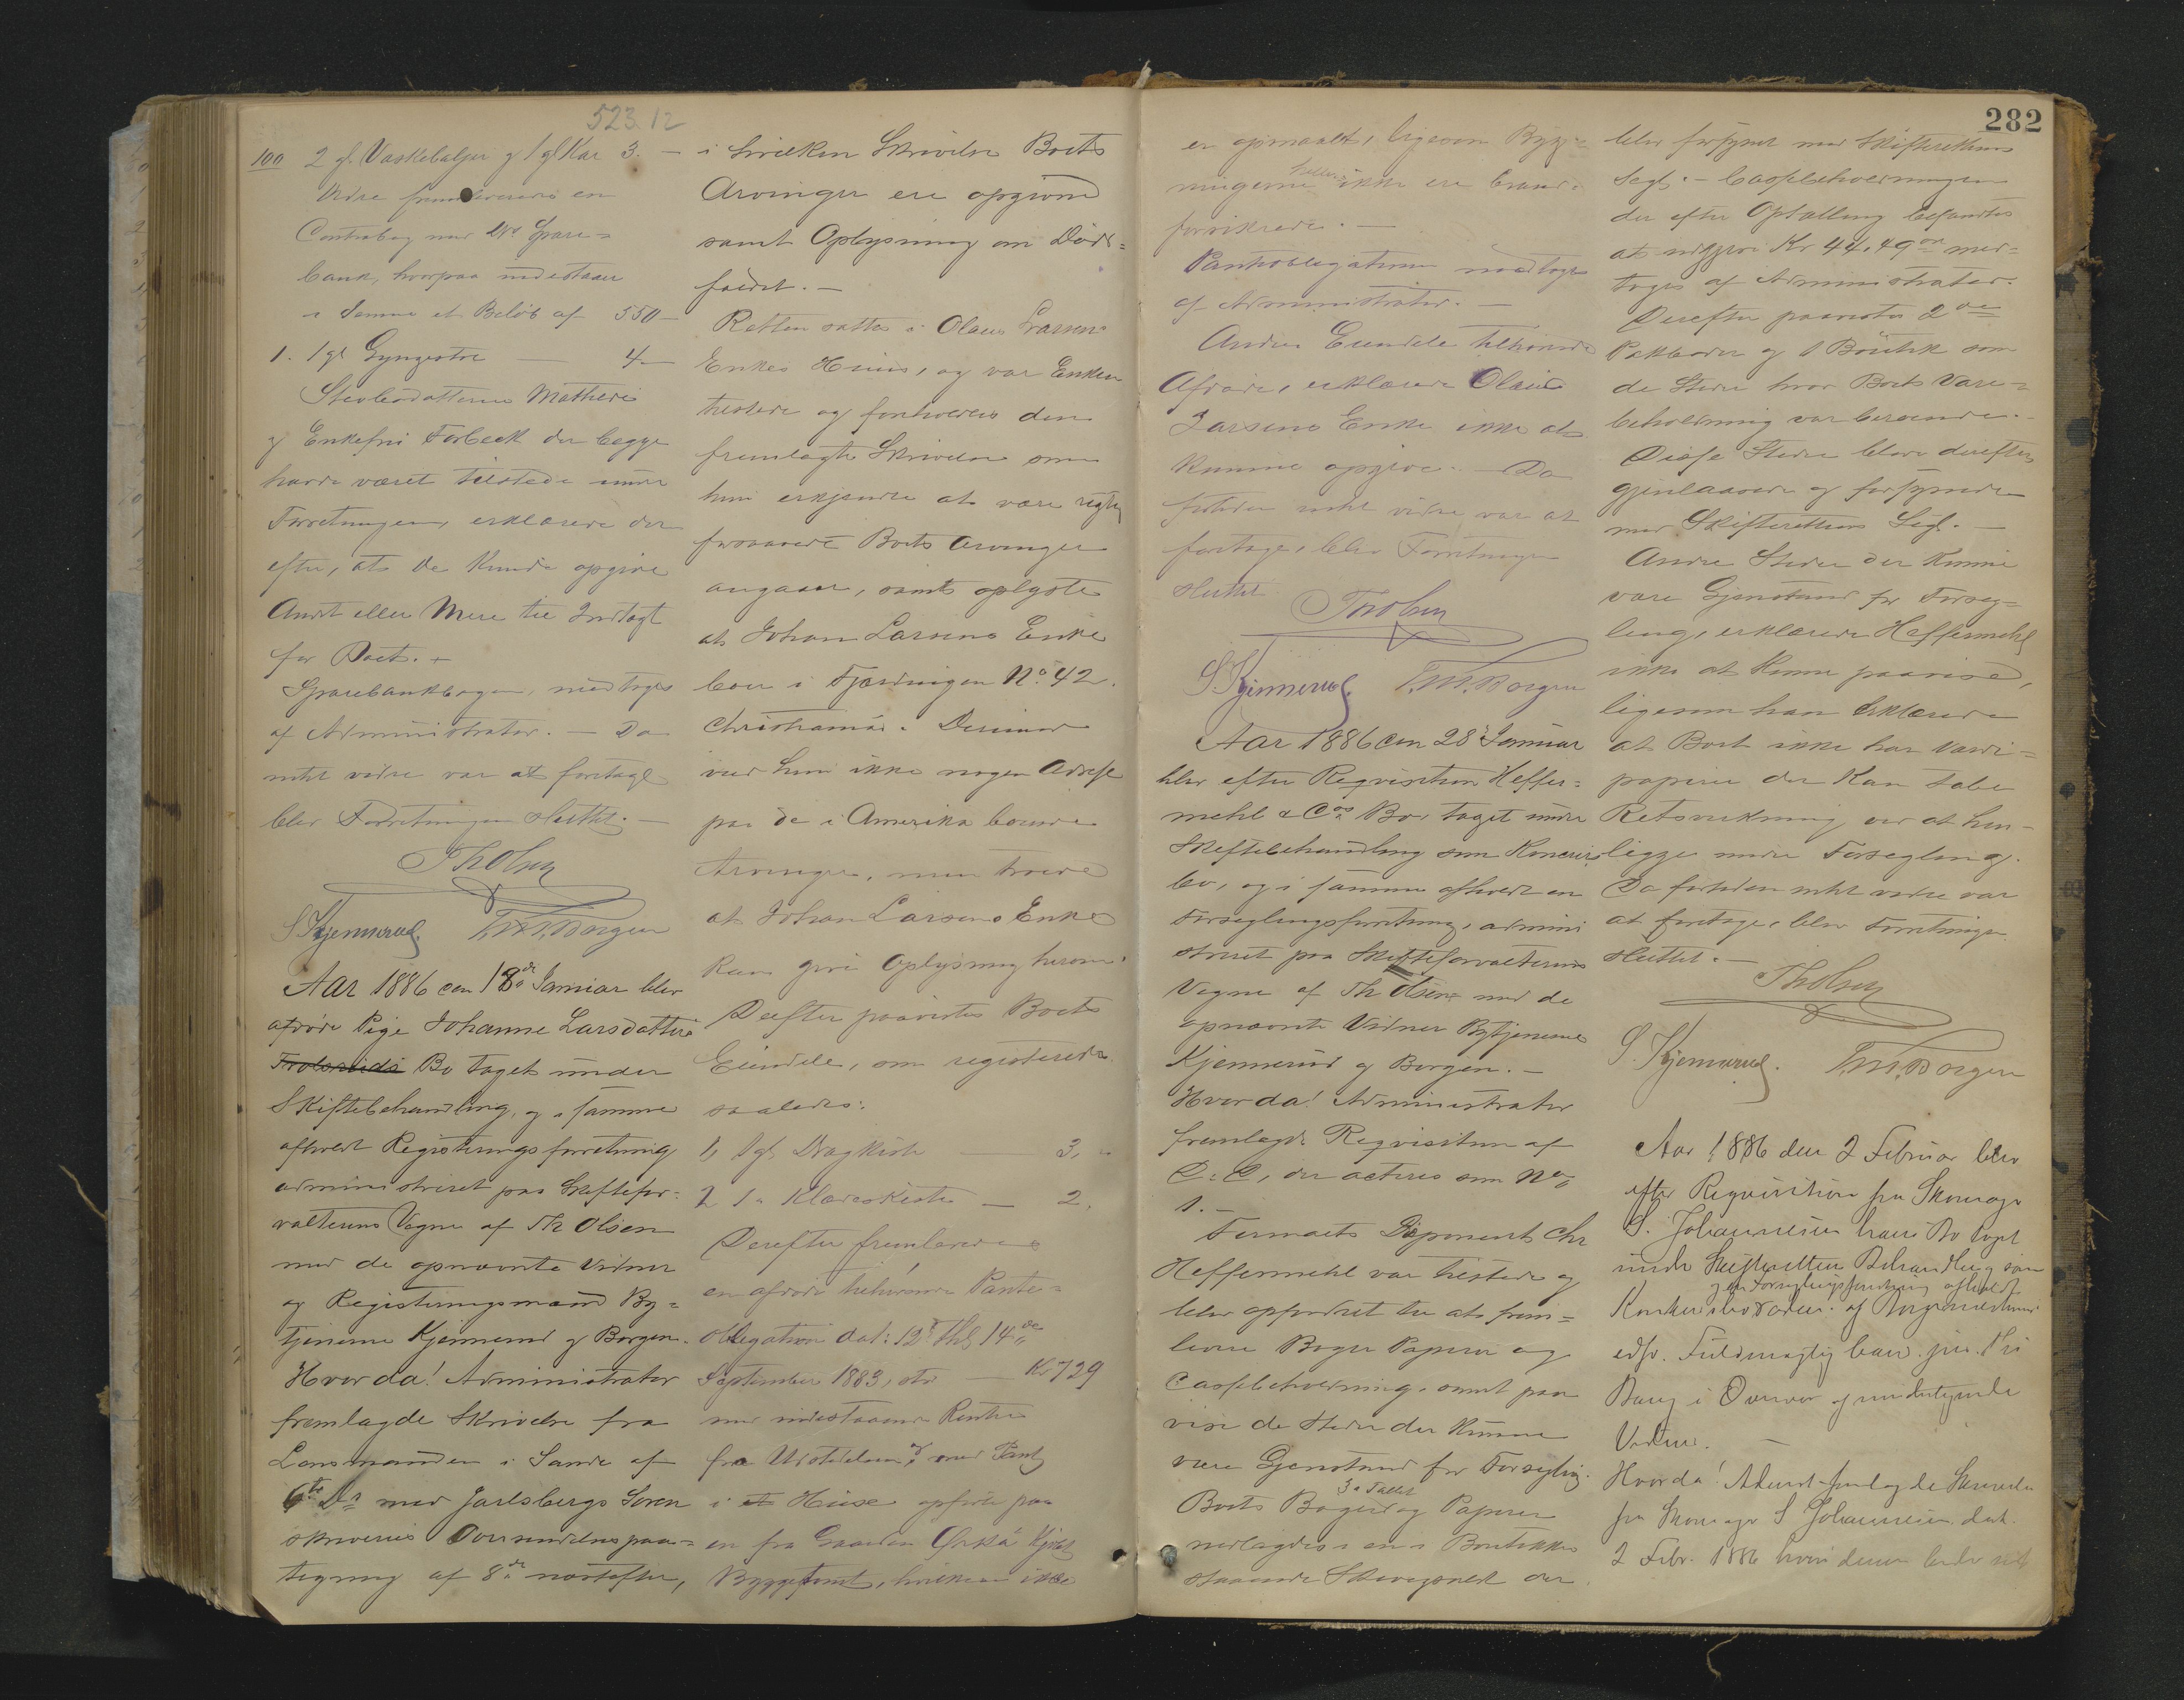 523.12
100 2 gl. Vaskebaljer og 1 gl Kar 3. —
Vidre fremleveredes en
Contrabog med Dr. Spare-
bank, hvorpaa indestaaer
i Samme et Beløb af 550 —
1. 1 gl Gyngestol — 4 —
Stevlesdatteren Mathea
og Enkefru Torbeck der begge
havde været tilstede under
Forretningen, erklærede der
efter, at de kunde opgive
Andt eller Mere til Indtægt
for Boet. +
Sparebankbogen, modtoges
af Administrator. — Da
intet vidre var at foretage
blev Forretningen sluttet. —
Th Olsen
S. Kjennerud. T. M. Borgen
Aar 1886 den 18de Januar blev
afdøde Pige Johanne Larsdatters
Bo taget under
Skiftebehandling, og i samme
afholdt Registeringsforretning
administreret paa Skiftefor-
valterens Vegne af Th Olsen
med de opnævnte Vidner
og Registeringsmænd By-
tjenerne Kjennerud og Borgen.
Hvorda! Administrator
fremlagde Skrivelse fra
Lensmanden i Sande af
6te Ds med Jarlsbergs Soren
skriveries Oversendelsespaa-
tegning af 8de næstefter,
i hvilken Skrivelse Boets
Arvinger ere opgivne
samt Oplysning om Døds-
faldet. —
Retten sattes i Olaus Larsens
Enkes Huus, og var Enken
tilstede og foreholdtes den
fremlagte Skrivelse som
hun erkjendte at være rigtig
forsaavidt Boets Arvinger
angaaer, samt oplyste
at Johan Larsens Enke
boer i Fjerdingen No. 42.
Christiania. Derimod
ved hun ikke nogen Adresse
paa de i Amerika boende
Arvinger, men troede
at Johan Larsens Enke
kan give Oplysning herom.
Derefter paavistes Boets
Eiendele, som registeredes
saaledes:
1, 1 gl Dragkiste — 3, "
2 1 " Klædeskiste — 2.
Derefter fremleveredes
en afdøde tilhørende Pante-
obligation dat: 12t Thl 14de
September 1883, stor — Kr 729
med indestaaende Renter
fra Udstedelsen, med Pant
i et Huse opført paa
en fra Gaarden Ørska kjøbt
Byggetomt, hvilken ikke
282
er opmaalt, ligesom Byg-
ningerne heller ikke ere brand-
forsikrede. —
Pantobligationen modtoges
af Administrator. —
Andre Eiendele tilhørende
Afdøde, erklærede Olaus
Larsens Enke ikke at
kunne opgive. — Da
fortiden intet vidre var at
foretage, blev Forretningen
sluttet.
Th Olsen
S. Kjennerud. T. M. Borgen
Aar 1886 den 28de Januar
blev efter Reqvisition Heffer-
mehl & Cos Bo, taget under
Skiftebehandling som Konkurs
bo, og i samme afholdt en
Forseglingsforretning, admini
streret paa Skifteforvalterens
Vegne af Th Olsen med de
opnævnte Vidner Bytjenerne
Kjennerud og Borgen. —
Hvorda! Administrator
fremlagde Reqvisition af
D: D, der acteres som No
1. —
Firmaets Disponent Chr
Heffermehl var tilstede og
blev opfordret til at frem-
levere Bøger Papirer og
Cassebeholdning, samt paa
vise de Steder der kunne
være Gjenstand for Forsegling.
Boets Bøger 3 i Tallet og Papirer
nedlagdes i en i Boutikken
staaende Skrivepult der
blev forsynet med Skifterettens
Segl. — Cassebeholdningen
der efter Optælling befandtes
at udgjøre Kr 44,49 øre mod-
toges af Administrator.
Derefter paavistes 2de
Pakboder og 1 Boutik som
de Steder hvor Boets Vare-
beholdning var beroende. —
Disse Steder bleve derefter
gjenlaasede og forsynede
med Skifterettens Segl. —
Andre Steder der kunne
være Gjenstand for Forseg-
ling, erklærede Heffermehl
ikke at kunne paavise,
ligesom han erklærede
at Boet ikke har Værdi-
papirer der kan tabe
Retsvirkning ved at hen-
ligge under Forsegling.
Da fortiden intet vidre var
at foretage, blev Forretningen
sluttet. —
Th Olsen
S. Kjennerud. T. M. Borgen
Aar 1886 den 2 Februar blev
efter Reqvisition fra Skomager
S. Johannesen hans Bo taget
under Skifterettens Behandling som
og en Forseglingsforretning afholdt
Konkursbo af Borgermesterens
edsv. Fuldmægtig cand. jur.
i Overvær af undertegnede
Vidner. —
Hvorda! Admst. fremlagde Skrivelse
fra Skomager S Johannesen dat.
2 Febr. 1886 hvori denne beder sit